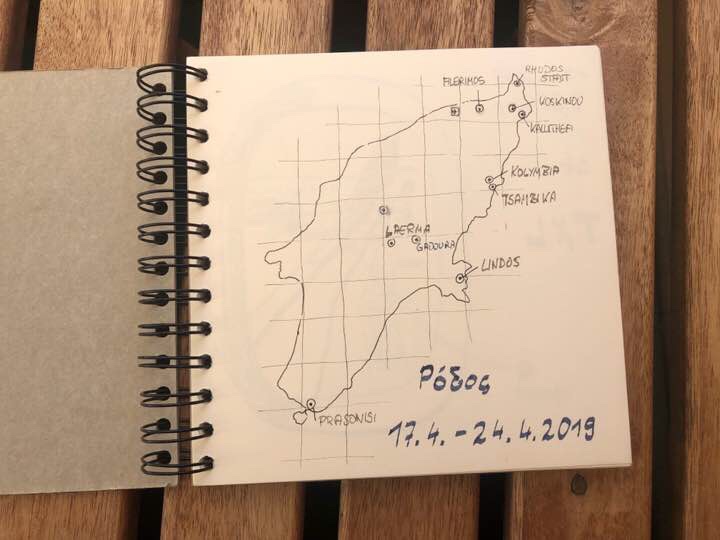 RHODOS
STADT
FILERIMOS
KOSKINOU
KALLITHEA
KOLYMBIA
TSAMBIKA
LAERMA
GADOURA
LINDOS
Ρόδος
PRASONISI
17.4.-24.4.2019